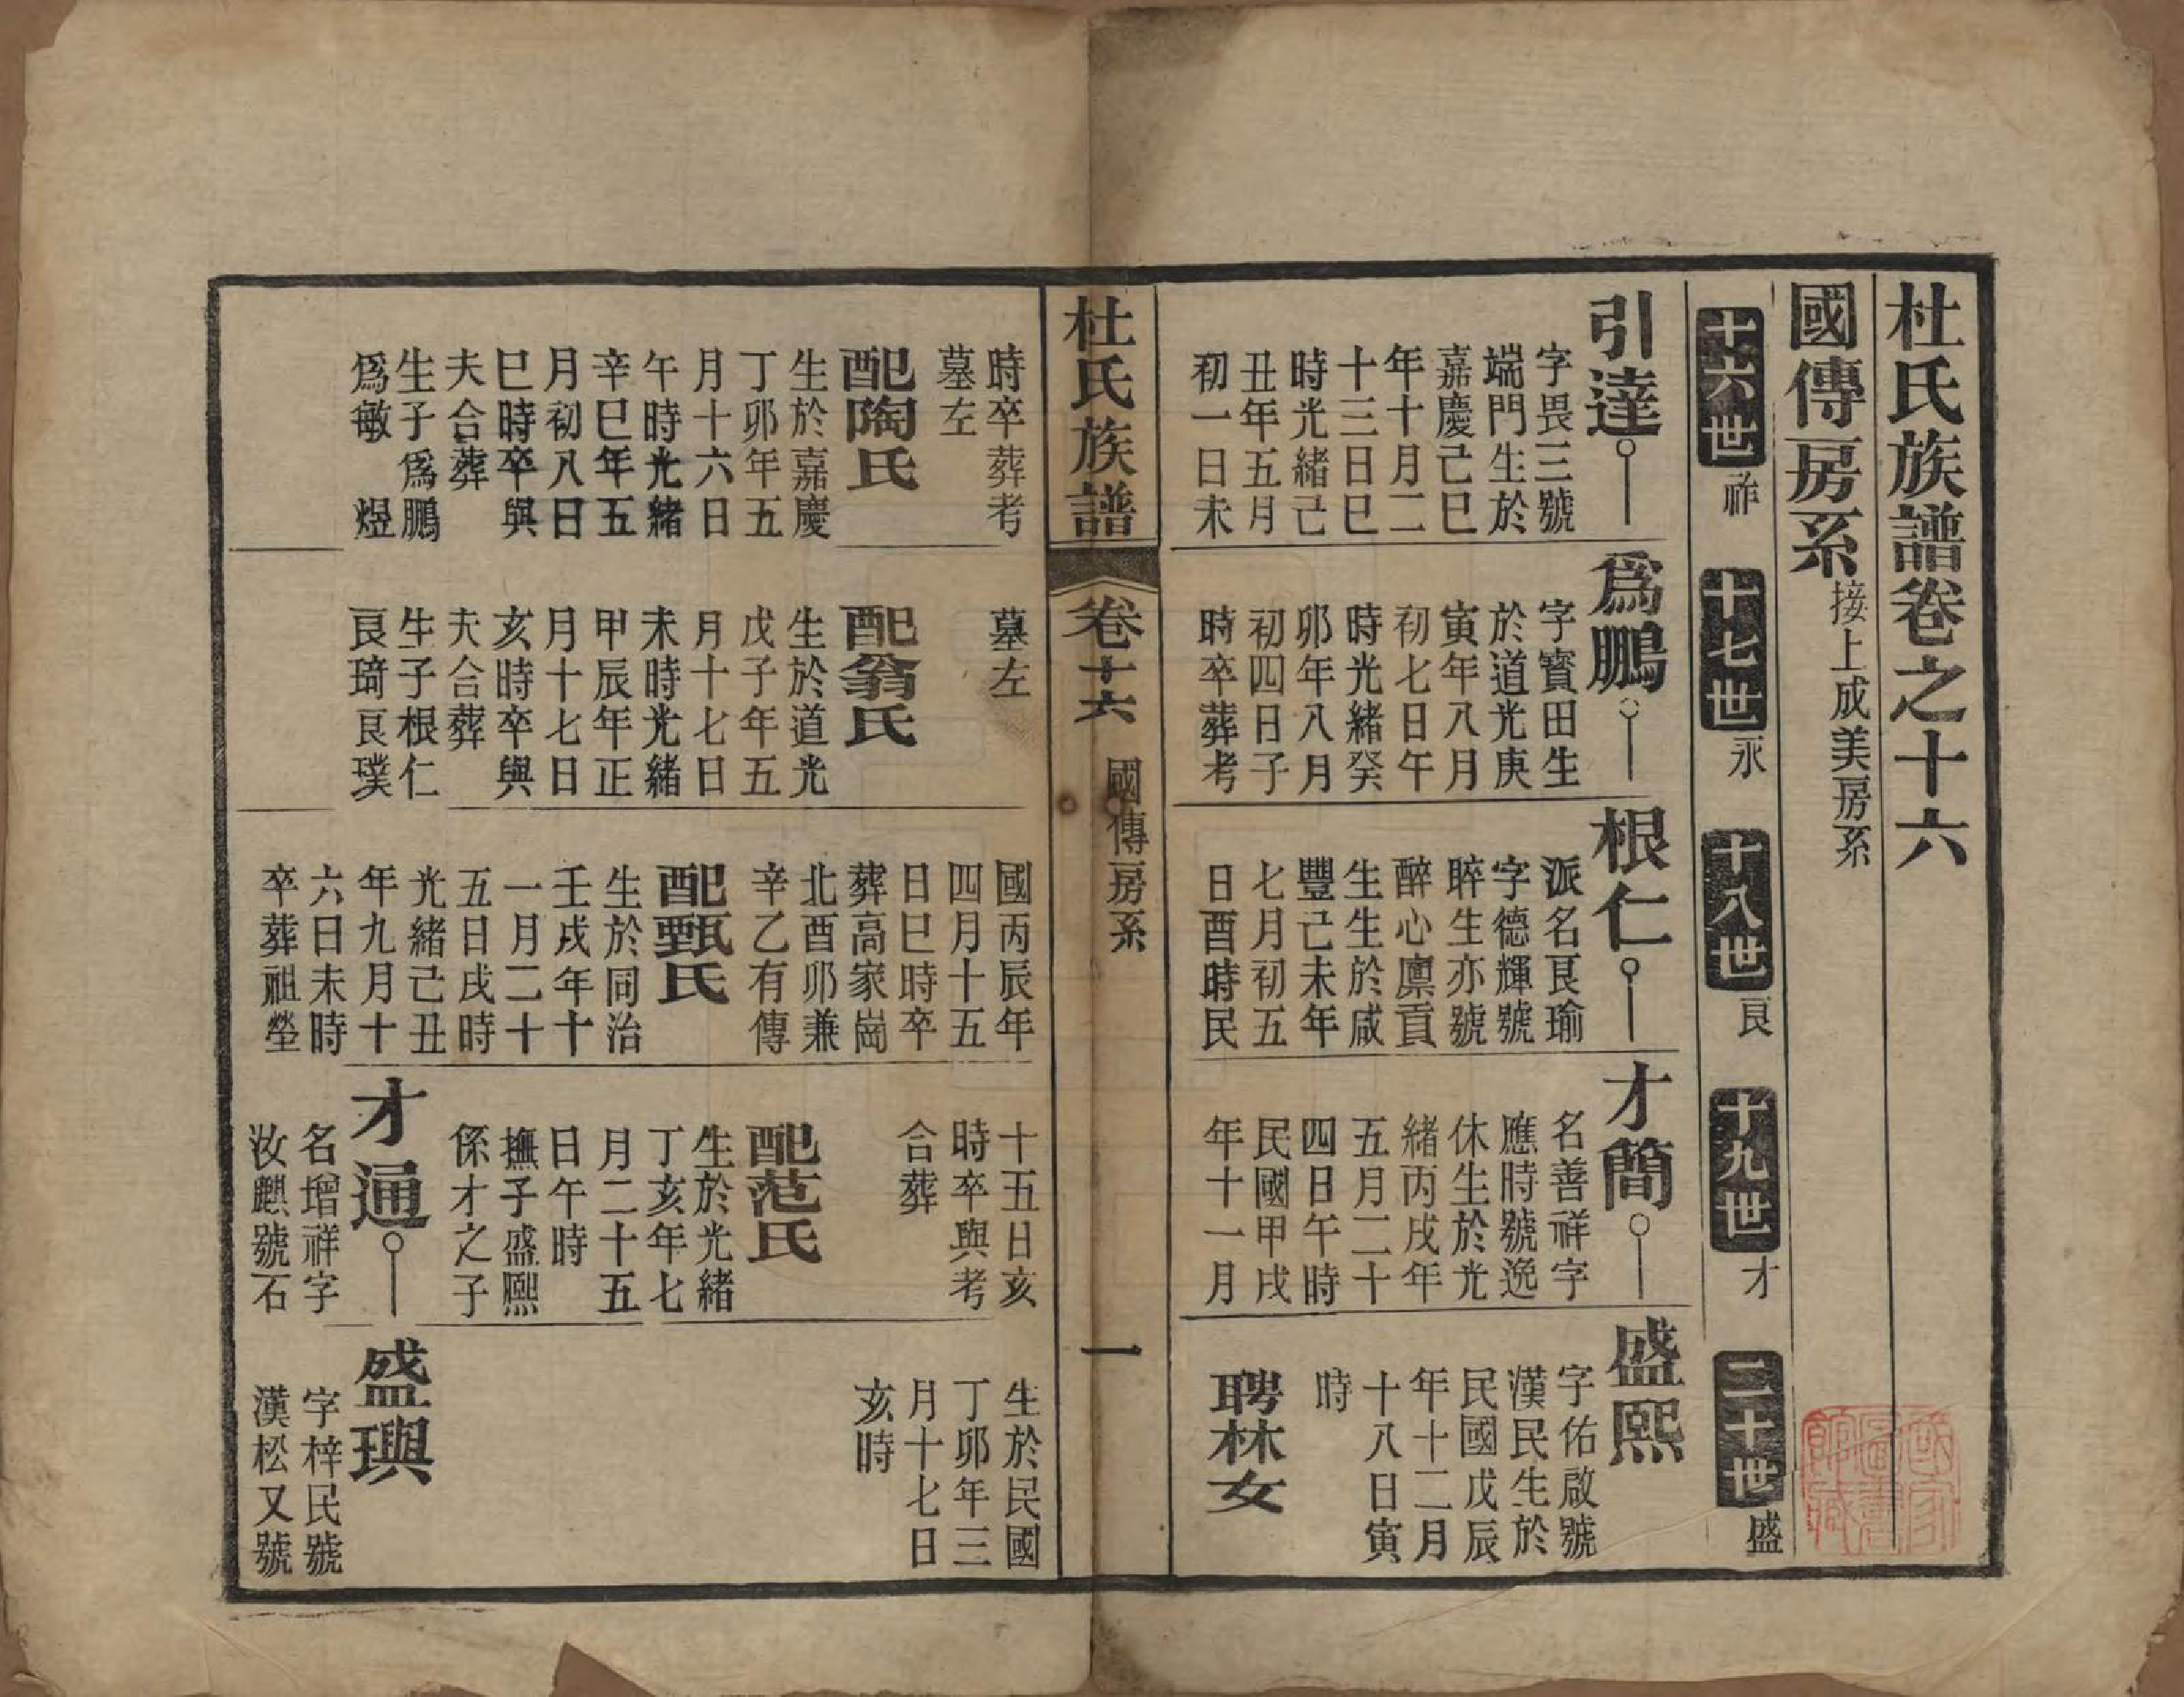 杜氏族譜卷之十六
國傳房系接上成美房系
十六世祚
十七世永
十八世良
十九世才
二十世盛
引達
字畏三號
端門生於
嘉慶己巳
年十月二
十三日巳
時光緒己
丑年五月
初一日未
爲鵬
字寶田生
於道光庚
寅年八月
初七日午
時光緒癸
卯年八月
初四日子
時卒葬考
根仁
派名良瑜
字德輝號
晬生亦號
醉心廪貢
生生於咸
豐己未年
七月初五
日酉時民
才簡
名善祥字
應時號逸
休生於光
緒丙戌年
五月二十
四日午時
民國甲戌
年十一月
盛熙
字佑啟號
漢民生於
民國戊辰
年十二月
十八日寅
時
聘林女
杜氏族譜
卷十六
國傳房系
一
時卒葬考
墓左
配陶氏
生於嘉慶
丁卯年五
月十六日
午時光緒
辛巳年五
月初八日
巳時卒與
夫合葬
生子爲鵬
爲敏 煜
墓左
配翁氏
生於道光
戊子年五
月十七日
未時光緒
甲辰年正
月十七日
亥時卒與
夫合葬
生子根仁
良琦良璞
國丙辰年
四月十五
日巳時卒
葬高家崗
北酉卯兼
辛乙有傳
配甄氏
生於同治
壬戌年十
一月二十
五日戌時
光緒己丑
年九月十
六日未時
卒葬祖塋
十五日亥
時卒與考
合葬
配范氏
生於光緒
丁亥年七
月二十五
日午時
撫子盛熙
係才之子
才通
名增祥字
汝麒號石
生於民國
丁卯年三
月十七日
亥時
盛璵
字梓民號
漢松又號
國家圖書館藏